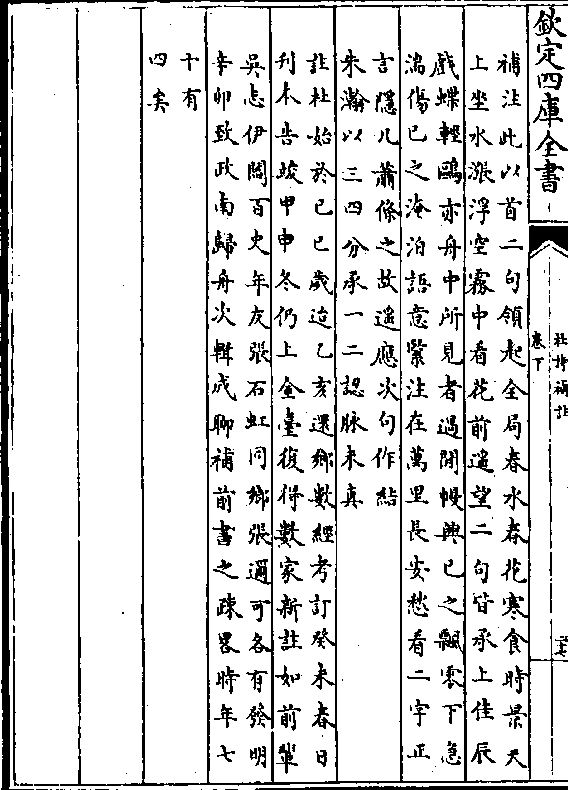 欽定四庫全書
杜詩補註
卷下
補注此以首二句領起全局春水春花寒食時景天
上坐水漲浮空霧中看花前遥望二句皆承上佳辰
戲蝶輕鷗亦舟中所見者過閒幔興已之飄零下急
湍傷已之淹泊語意緊注在萬里長安愁看二字正
言隱几蕭條之故遥應次句作結
朱瀚以三四分承一二認脉未真
註杜始於己巳歲迨乙亥還鄉數經考訂癸未春日
刋本告竣甲申冬仍上金臺復得數家新註如前輩
吳志伊閻百史年友張石虹同鄉張邇可各有發明
辛卯致政南歸舟次輯成聊補前書之疎畧時年七
十有
四矣